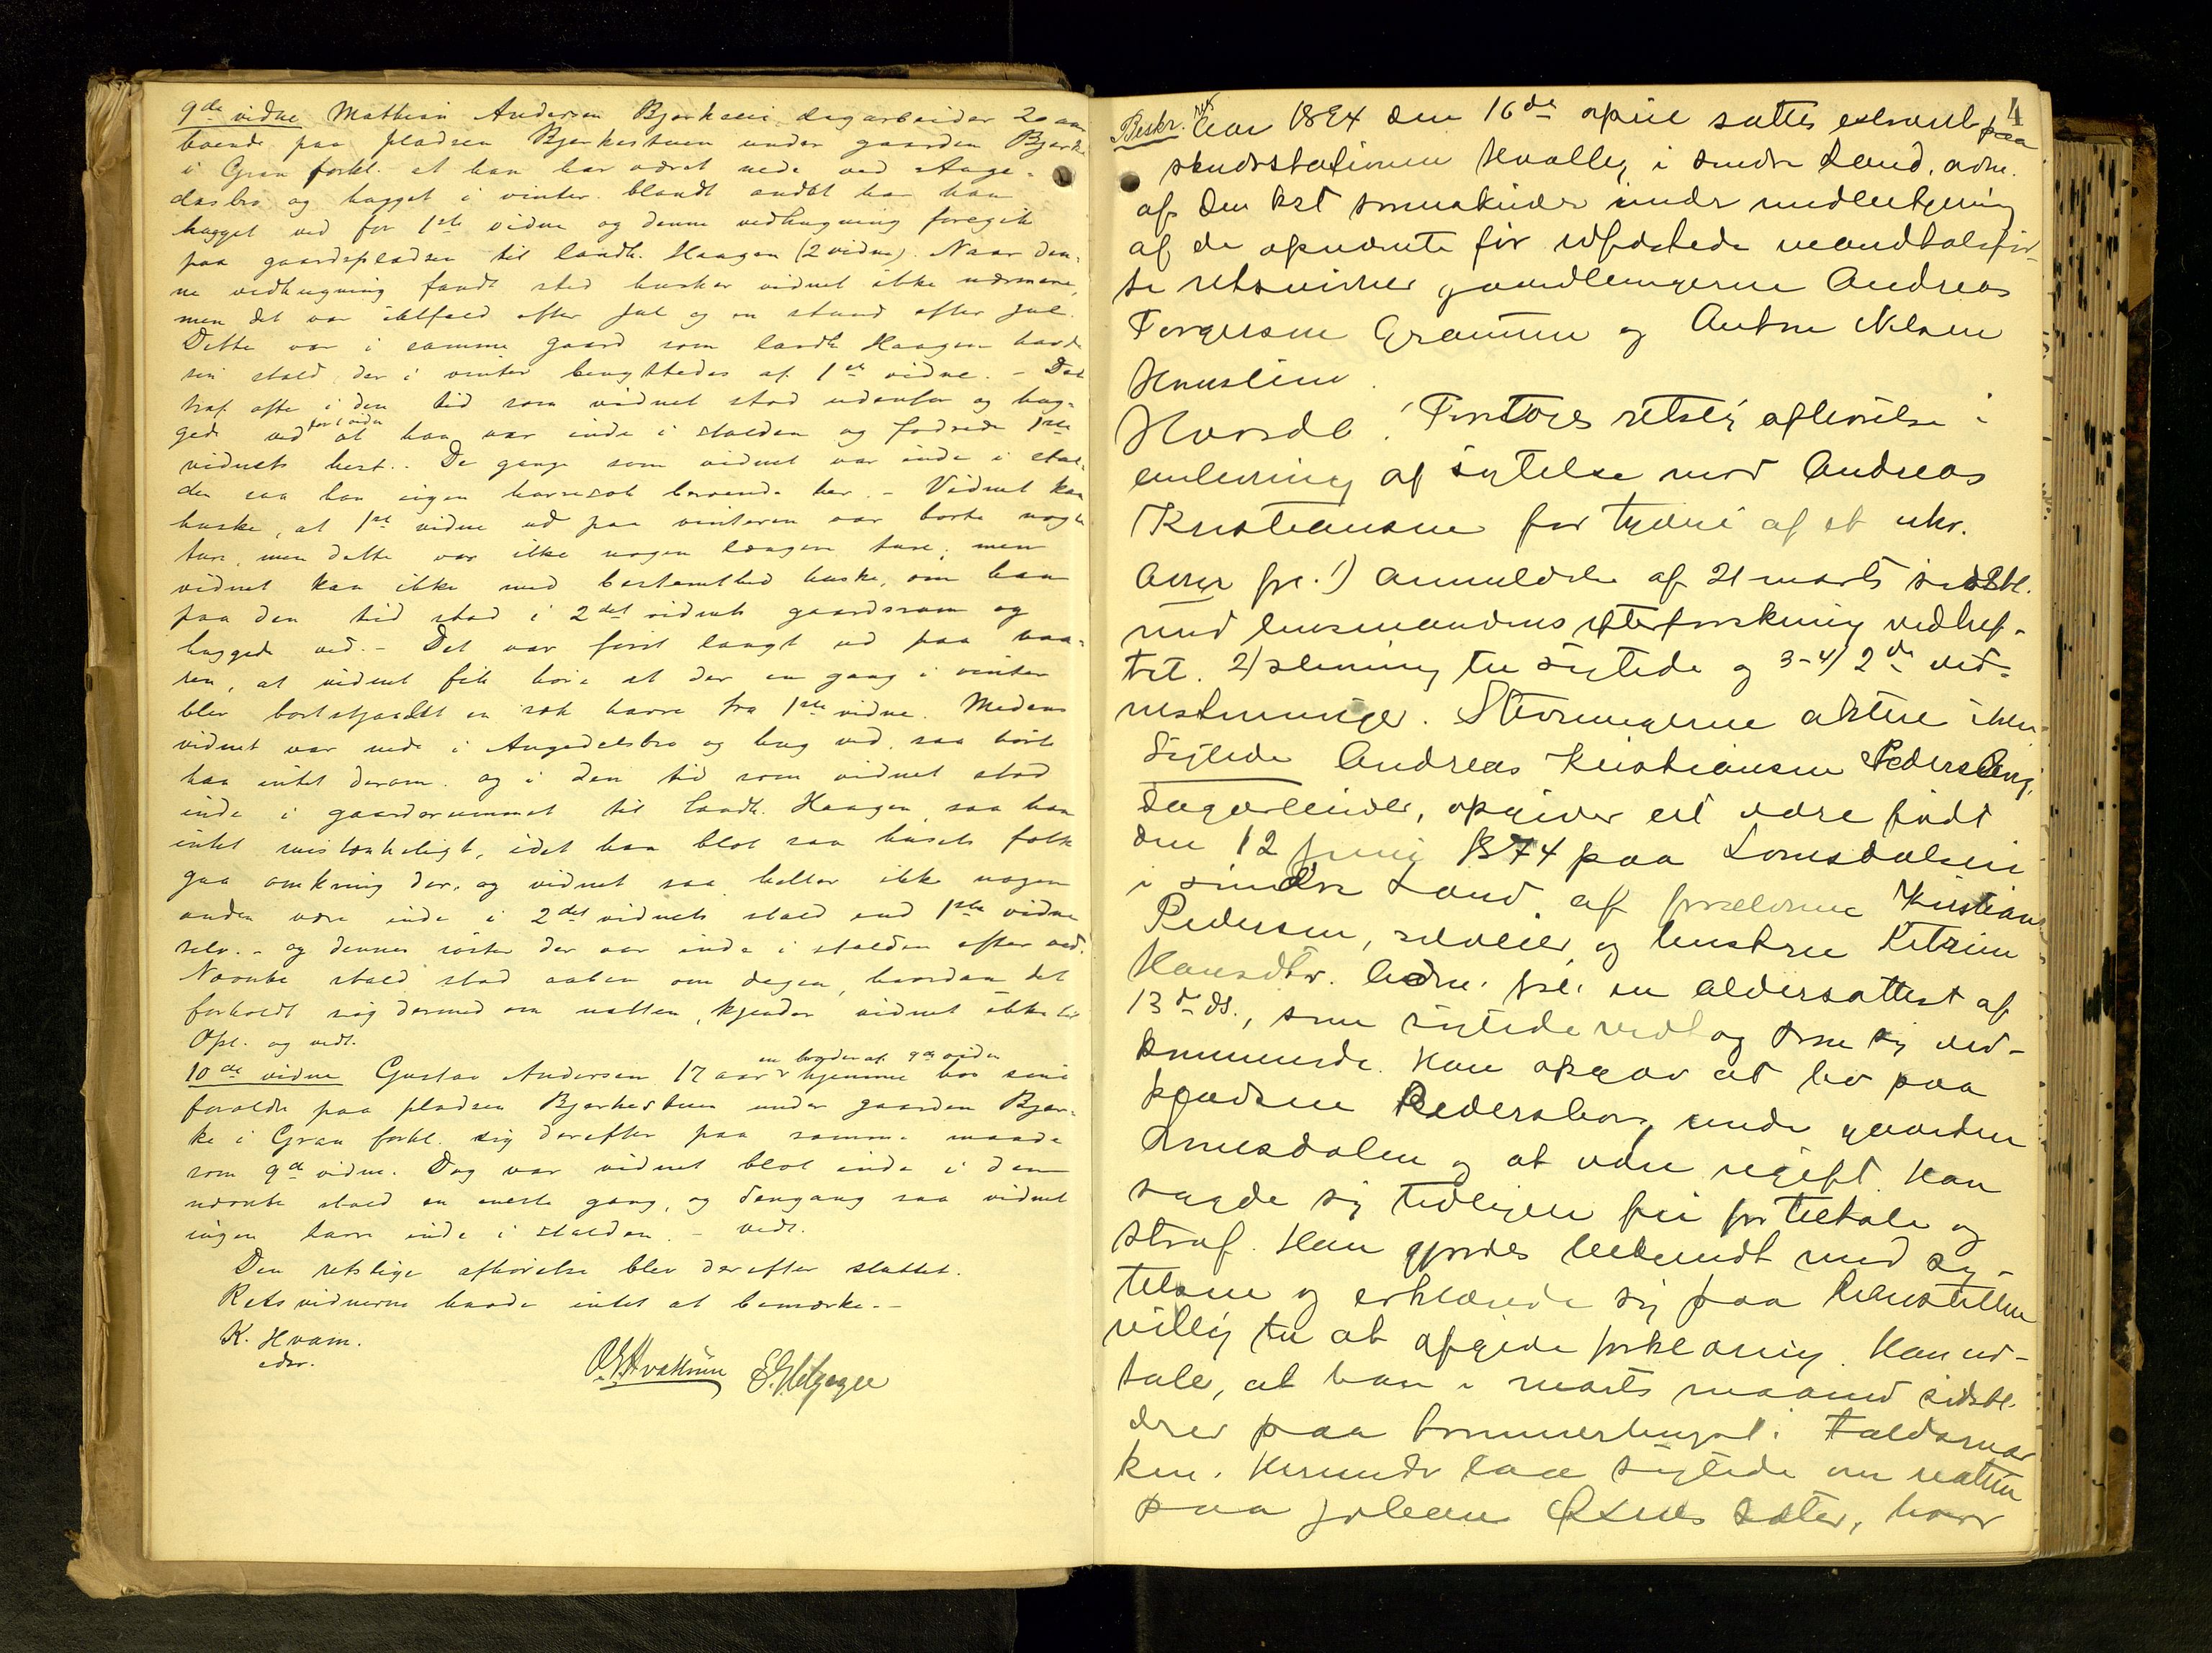 9de vidne Mathias Andersen Bjerkeeie dagarbeider 20 aar
boende paa pladsen Bjerkestuen under gaarden Bjerke
i Gran forkl. at han har været nede ved Auge-
dasbro og hugget i vinter blandt andet har han
hugget ved for 1ste vidne og denne vedhugning foregik
paa gaardspladsen til landh. Haagen (2 vidne). Naar den-
ne vedhugning fandt sted husker vidnet ikke nærmere,
men det var ialfald efter jul og en stund efter jul.
Dette var i samme gaard som landh Haagen havde
sin stald der i vinter benyttedes af 1ste vidne. – Det
traf ofte i den tid som vidnet stod udenfor og hug-
gede ved for 1 vidne at han var inde i stalden og fodrede 1ste
vidnets hest. De gange som vidnet var inde i stal-
den saa han ingen havresæk beroende her. – Vidnet kan
huske, at 1ste vidne ud paa vinteren var borte nogle
ture, men dette var ikke nogen længere ture; men
vidnet kan ikke med bestemthed huske, om han
paa den tid stod i 2det vidnets gaardsrum og
huggede ved. – Det var først langt ud paa vaa-
ren, at vidnet fik høre at der en gang i vinter
blev bortstjaalet en sæk havre fra 1ste vidne. Medens
vidnet var nede i Augedalsbro og hug ved, saa hørte
han intet derom. og i den tid som vidnet stod
inde i gaardsrummet til landh. Haagen saa han
intet mistænkeligt, idet han blot saa husets folk
gaa omkring der, og vidnet saa heller ikke nogen
anden være inde i 2det vidnets stald end 1ste vidne
selv. – og dennes søster der var inde i stalden efter ved.
Nævnte stald stod aaben om dagen, hvordan det
forholdt sig dermed om natten, kjender vidnet ikke til
Opl. og vedt.
10de vidne Gustav Andersen 17 aar en broder af 9de vidne hjemme hos sine
forældre paa pladsen Bjerkestuen under gaarden Bjer-
ke i Gran forkl. sig derefter paa samme maade
som 9de vidne. Dog var vidnet blot inde i den
nævnte stald en eneste gang, og dengang saa vidnet
ingen havre inde i stalden. – vedt.
Den retslige afhørelse blev derefter sluttet.
Retsvidnerne havde intet at bemærke. –
K. Hvam.
edsv.
4
Beskr. Aar 1894 den 16de april sattes extraret paa
skudsstationen Hvalby i søndre Land, adm.
af den kst sorenskriver under medbetjening
af de opnævnte før edfæstede mandtalsfør-
te retsvidner gaardbrugerne Andreas
Torgersen Graunen og Anton Nelsen
Hauslien.
Hvorda: Foretoges retslig afhørelse i
anledning af sigtelse mod Andreas
Kristiansen for tyveri af et uhr.
Aktor frl. 1) anmeldelse af 21 marts sidstl.
med lensmandens efterforskning vedhef-
tet. 2) stevning til sigtede og 3–4) 2de vid-
nestevninger. Stevningerne akteres ikke
Sigtede Andreas Kristiansen Pedersberg,
dagarbeider, opgiver at være født
den 12 juni 1874 paa Lomsdalseie
i søndre Land af forældrene Kristian
Pedersen, selveier, og hustru Katrine
Hansdtr. Adm. frl. en aldersattest af
13de ds., som sigtede vedtog som sig ved-
kommende. Han opgav at bo paa
pladsen Pedersberg under gaarden
Lomsdalen og at være ugift. Han
sagde sig tidligere fri for tiltale og
straf. Han gjordes bekjendt med sig-
telsen og erklærede sig paa tilspørgen
villig til at afgive forklaring. Han ud-
taler, at han i marts maaned sidstl.
drev paa tømmerhugst i
ken. Herunder laa sigtede om natten
paa Johan sæter, hvor